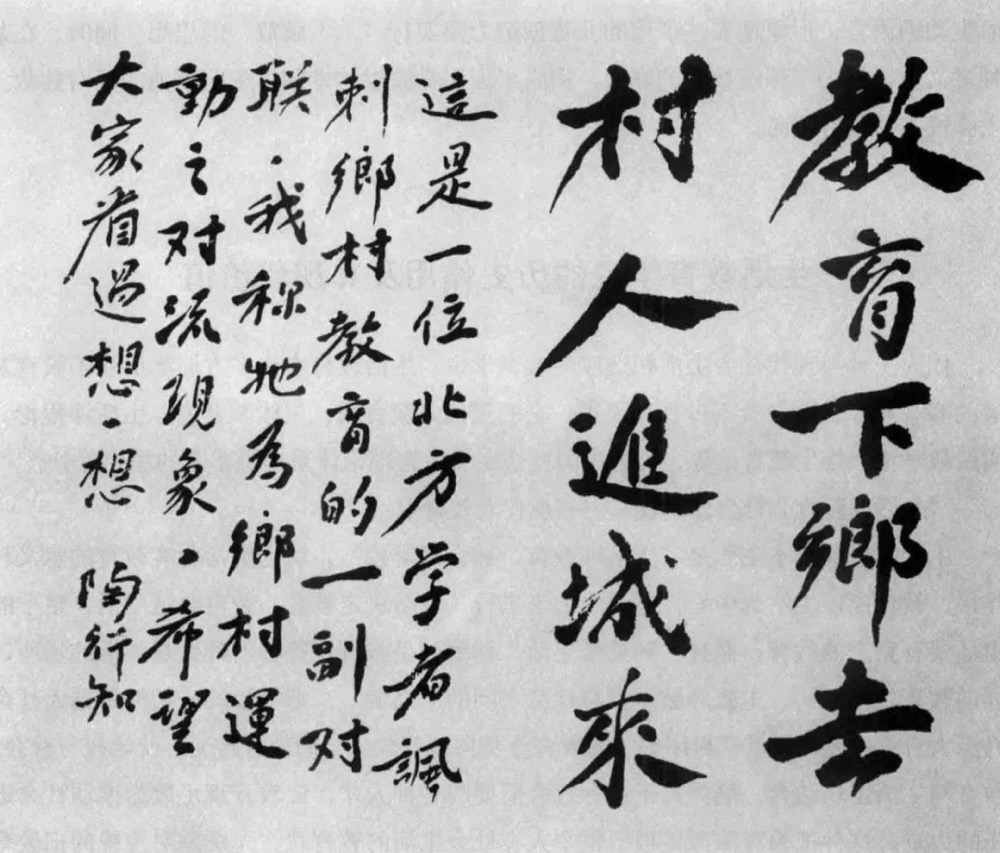 教育下鄉去
村人進城來
這是一位北方学者諷
刺鄉村教育的一副对
联．我称牠為鄉村運
動之对流現象．希望
大家看過想一想 陶行知